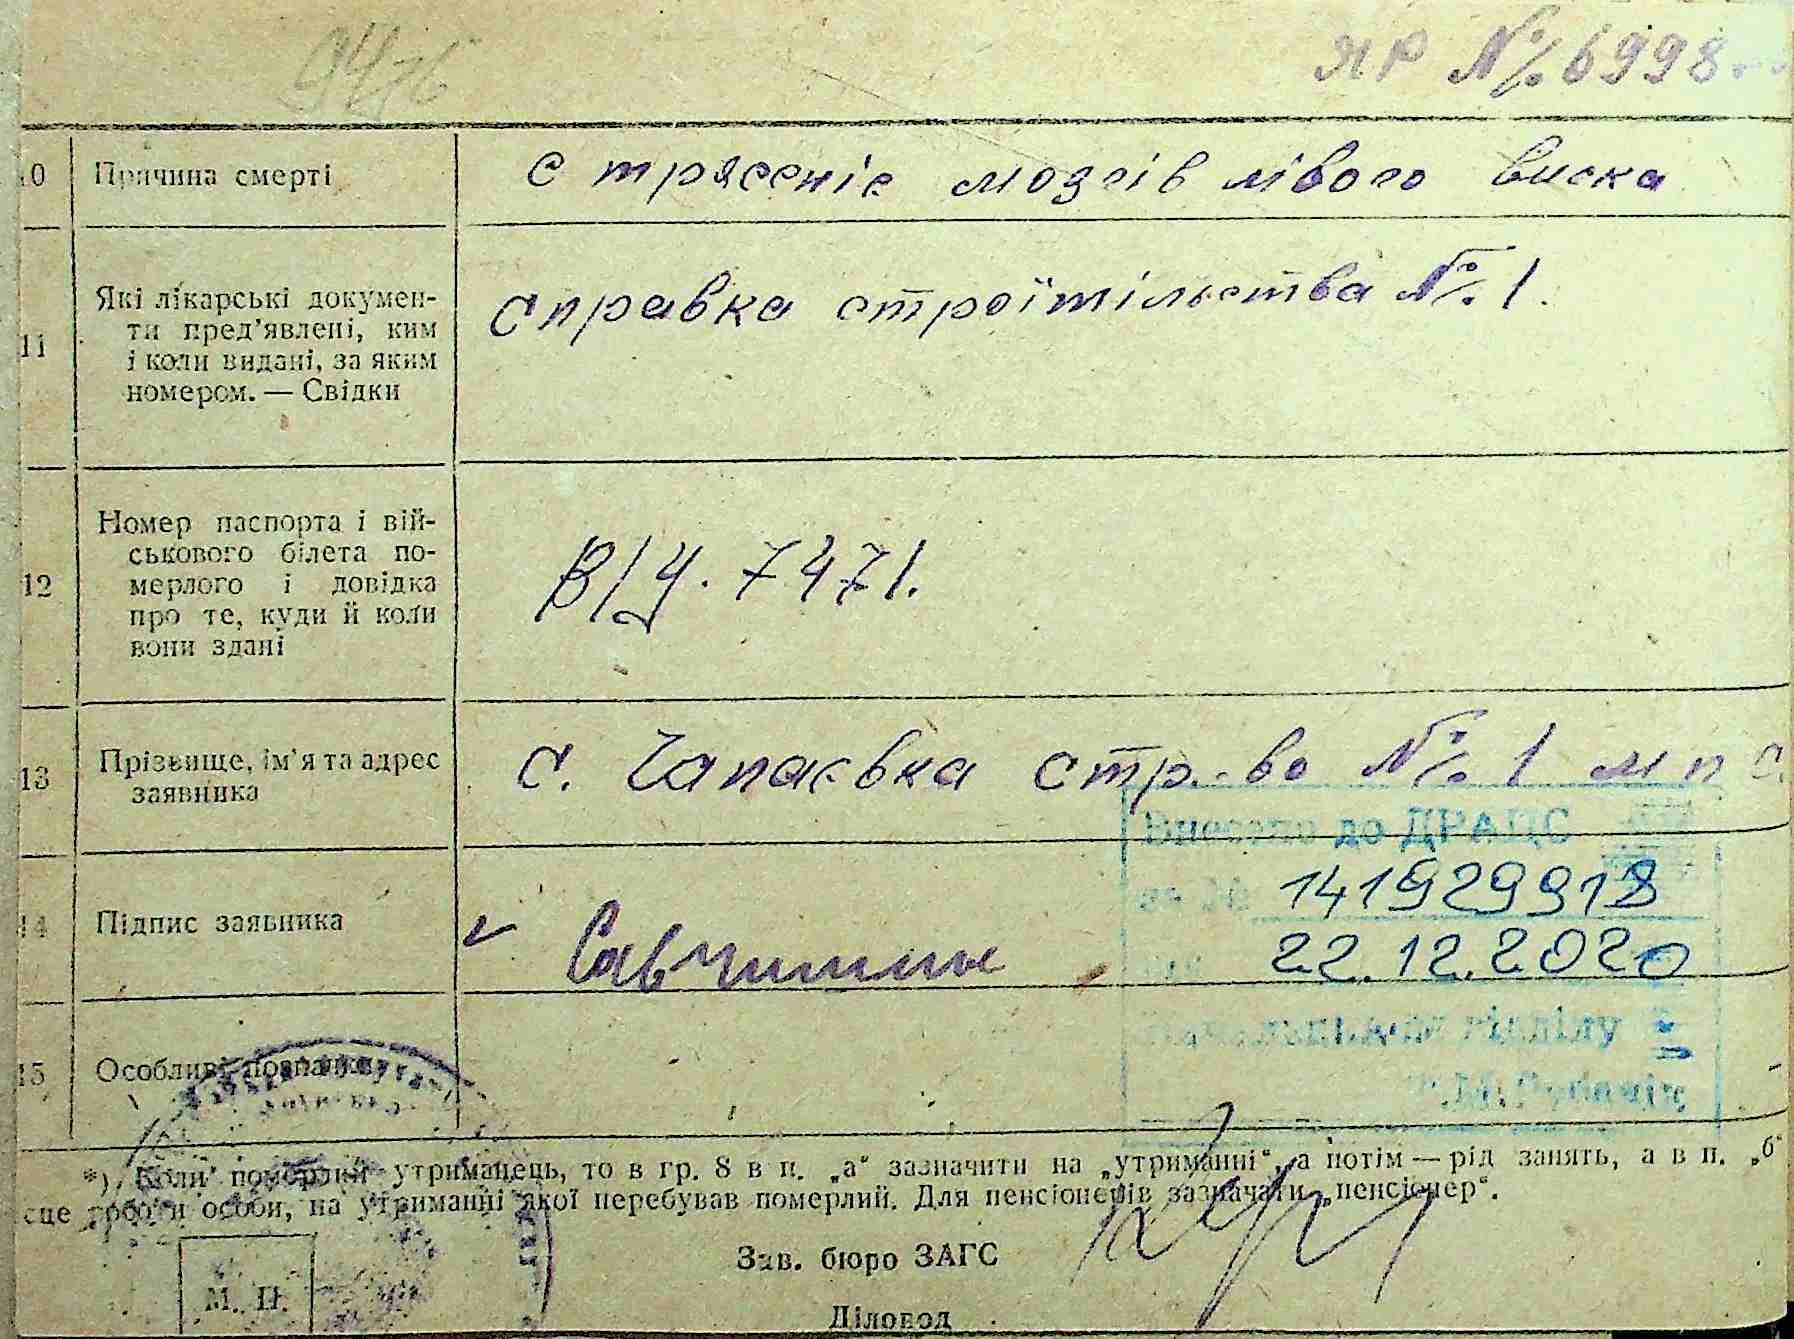 9476
ЯР № 6998
10 Причина смерті стрясеніє мозгів лівого виска
11 Які лікарські докумен-
ти пред'явлені, ким
і коли видані, за яким
номером. — Свідки
справка строїтільства № 1.
12 Номер паспорта і вій-
ськового білета по-
мерлого і довідка
про те, куди й коли
вони здані
В/У. 7471.
13 Прізвище, ім'я та адрес
заявника
с. Чапаєвка стр-во № 1 м п с.
Внесено до ДРАЦС
за № 141929918
14 Підпис заявника
22.12.2020
відділу
15 Особливі позначки
*) Коли померлий утриманець, то в гр. 8 в п. „а“ зазначити на „утриманні“, а потім — рід занять, а в п. „б“
сце роботи особи, на утриманні якої перебував померлий. Для пенсіонерів зазначати „пенсіонер“.
Зав. бюро ЗАГС
М. П.
Діловод